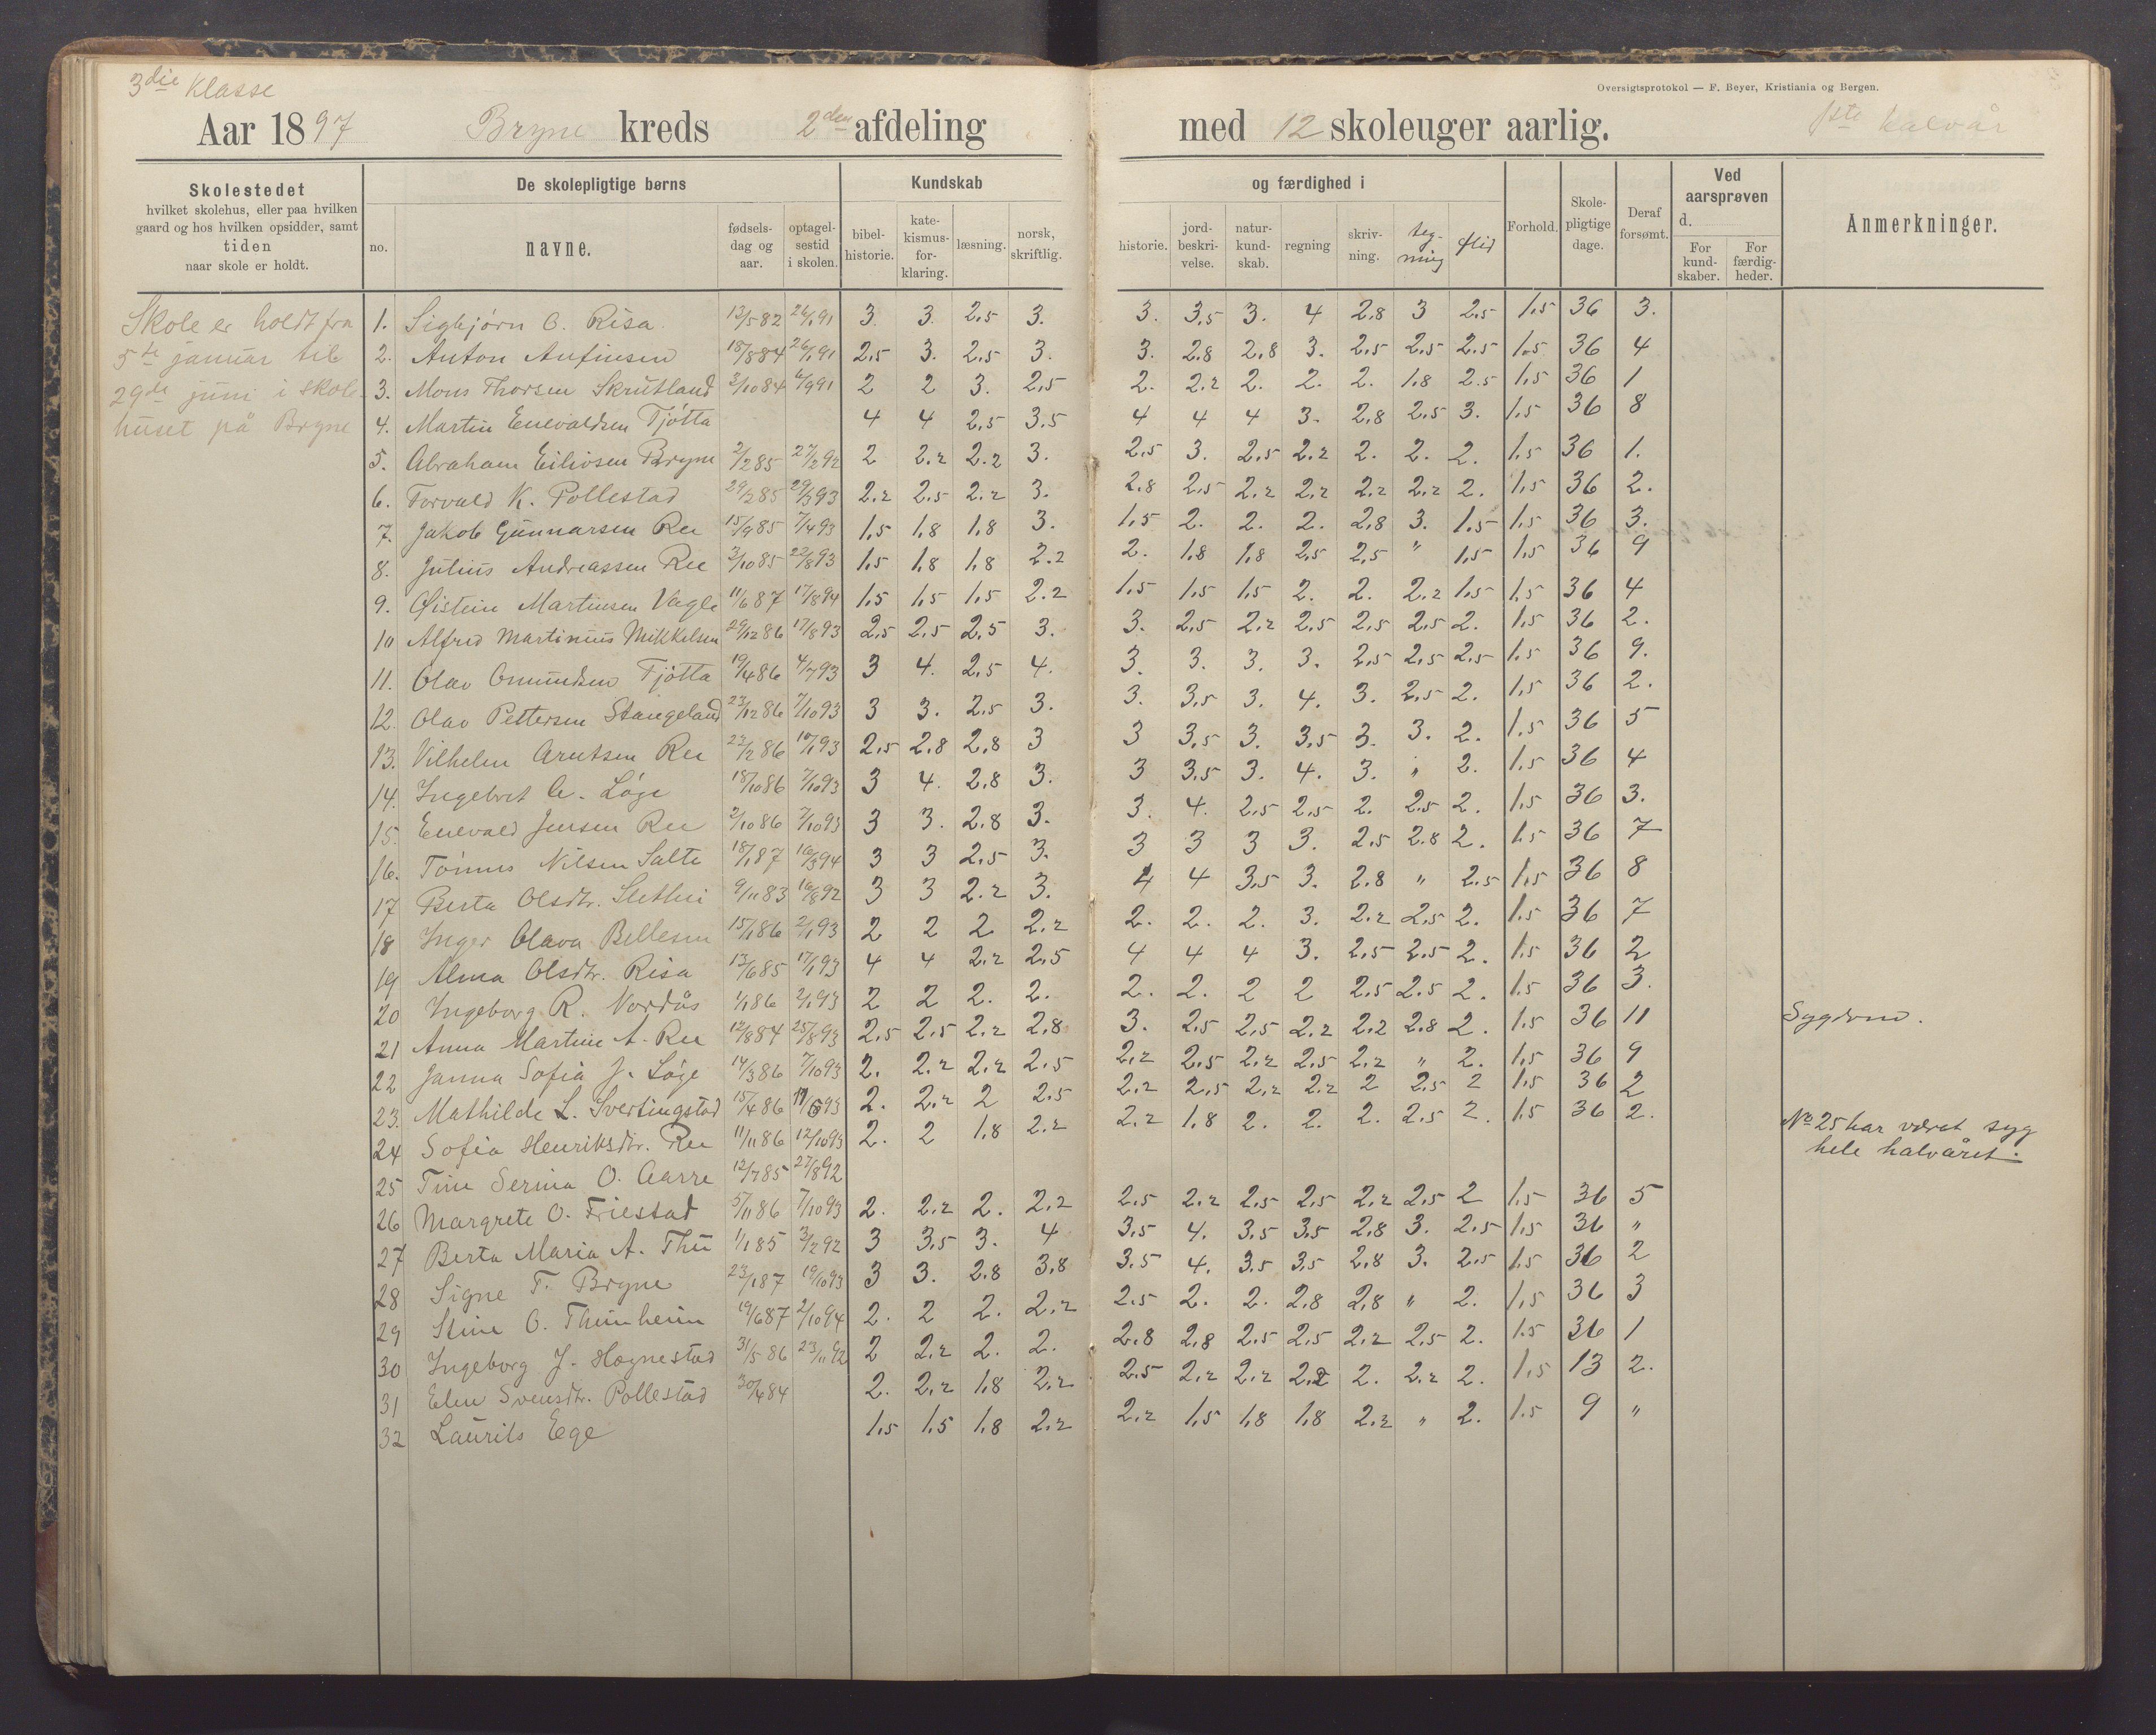 3die Klasse
Oversigtsprotokol — F. Beyer, Kristiania og Bergen.
Aar 1897 Bryne kreds 2den afdeling med 12 skoleuger aarlig. 1ste halvår
Skolestedet
hvilket skolehus, eller paa hvilken
gaard og hos hvilken opsidder, samt
tiden
naar skole er holdt.
De skolepligtige børns
no. navne. fødsels-dag og aar. optagel-sestid i skolen.
Kundskab og færdighed i
bibel-historie. kate-kismus-for-klaring. læsning. norsk, skriftlig. historie. jord-beskri-velse. natur-kund-skab. regning skriv-ning. teg-ning flid
Forhold. Skole-pligtige dage. Deraf forsømt.
Ved aarsprøven d.
For kund-skaber. For færdig-heder.
Anmerkninger.
Skole er holdt fra
5te januar til
29de juni i skole-
huset på Bryne
1. Sigbjørn O. Risa 13/5 82 26/1 91 3 3 2.5 3. 3. 3.5 3. 4 2.8 3 2.5 1.5 36 3.
2. Anton Anfinsen 18/8 84 26/1 91 2.5 3. 2.5 3. 3. 2.8 2.8 3. 2.5 2.5 2.5 1.5 36 4
3. Mons Thorsen Skrutland 3/10 84 4/9 91 2 2 3. 2.5 2. 2.2 2. 2. 2. 1.8 2.5 1.5 36 1
4. Martin Enevaldsen Tjøtta 4 4 2.5 3.5 4 4 4 3. 2.8 2.5 3. 1.5 36 8
5. Abraham Eilivsen Bryne 2/2 85 27/2 92 2 2.2 2.2 3. 2.5 3. 2.5 2.2 2. 2. 2. 1.5 36 1.
6. Torvald K. Pollestad 29/3 85 29/3 93 2.2 2.5 2.2 3. 2.8 2.5 2.2 2.2 2.2 2.2 2. 1.5 36 2.
7. Jakob Gunnarsen Ree 15/9 85 7/4 93 1.5 1.8 1.8 3. 1.5 2. 2. 2. 2.8 3. 1.5 1.5 36 3.
8. Julius Andreassen Ree 3/10 85 22/8 93 1.5 1.8 1.8 2.2 2. 1.8 1.8 2.5 2.5 " 1.5 1.5 36 9
9. Øistein Martinsen Vagle 11/6 87 17/8 94 1.5 1.5 1.5 2.2 1.5 1.5 1.5 2. 2. 2.2 1.5 1.5 36 4
10 Alfred Martinius Mikkelsen 29/12 86 17/8 93 2.5 2.5 2.5 3. 3. 2.5 2.2 2.5 2.5 2.5 2. 1.5 36 2.
11. Olav Omundsen Tjøtta 19/4 86 4/7 93 3 4. 2.5 4. 3. 3. 3. 3. 2.5 2.5 2.5 1.5 36 9.
12. Olav Pettersen Stangeland 23/12 86 7/10 93 3 3. 2.5 3. 3. 3.5 3. 4. 3. 2.5 2. 1.5 36 2.
13. Vilhelm Arntsen Ree 22/2 86 10/1 93 2.5 2.8 2.8 3 3 3.5 3. 3.5 3. 3. 2. 1.5 36 5
14. Ingebret A. Løge 18/10 86 7/10 93 3 4. 2.8 3. 3 3.5 3. 4. 3. " 2. 1.5 36 4
15. Enevald Jensen Ree 2/10 86 7/10 93 3 3. 2.8 3. 3. 4. 2.5 2.5 2. 2.5 2. 1.5 36 3.
16. Tønnes Nilsen Salte 18/1 87 16/3 94 3 3 2.5 3. 3 3 3 3. 2.5 2.8 2. 1.5 36 7
17 Berta Olsdtr. Slethei 9/11 83 16/8 92 3 3 2.2 3. 4 4 3.5 3. 2.8 " 2.5 1.5 36 8
18 Inger Olava Bellesen 15/1 86 2/1 93 2 2 2 2.2 2. 2. 2. 3. 2.2 2.5 2. 1.5 36 7
19 Alma Olsdtr. Risa 13/6 85 17/1 93 4 4 2.2 2.5 4 4 4 3. 2.5 2.5 2. 1.5 36 2
20 Ingeborg R. Nordås 1/1 86 2/1 93 2 2 2. 2. 2. 2. 2 2 2.5 2.5 2. 1.5 36 3.
21 Anna Martine A. Ree 12/8 84 25/8 93 2.5 2.5 2.2 2.8 3. 2.5 2.5 2.2 2.2 2.8 2. 1.5 36 11 Sygdom.
22 Janna Sofia J. Løge 14/3 86 7/10 93 2. 2.2 2.2 2.5 2.2 2.5 2.2 2.5 2.2 " 2. 1.5 36 9
23. Mathilde L. Svertingstad 15/4 86 11/6 93 2. 2.2 2 2.5 2.2 2.5 2.2 2.2 2 2.5 2 1.5 36 2
24 Sofia Henriksdtr. Ree 11/11 86 12/10 93 2. 2 1.8 2.2 2.2 1.8 2. 2. 2. 2.5 2. 1.5 36 2.
25 Tine Serina O. Aarre 12/7 85 27/8 92 No 25 har været syg
hele halvåret.
26 Margrete O. Friestad 5/11 86 7/10 93 2. 2.2 2. 2.2 2.5 2.2 2.5 2.5 2.2 2.5 2 1.5 36 5
27 Berta Maria A. Thu 1/1 85 3/2 92 3 3.5 3. 4 3.5 4. 3.5 3.5 2.8 3. 2.5 1.5 36 "
28 Signe T. Bryne 23/1 87 19/10 93 3 3. 2.8 3.8 3.5 4. 3.5 3.5 2.8 3. 2.5 1.5 36 2
29 Stine O. Thunheim 19/6 87 2/10 94 2. 2 2. 2.2 2.5 2. 2. 2.8 2.8 " 2. 1.5 36 3
30 Ingeborg J. Høgnestad 31/5 86 23/11 92 2 2.2 2. 2. 2.8 2.8 2.5 2.5 2.2 2.5 2. 1.5 36 1
31 Elen Svensdtr. Pollestad 30/4 84 2. 2.2 1.8 2.2 2.5 2.2 2.2 2.2 2. 2.2 2. 1.5 13 2.
32 Laurits Ege 1.5 1.5 1.8 2.2 2.2 1.5 1.8 1.8 2.2 " 2. 1.5 9 "